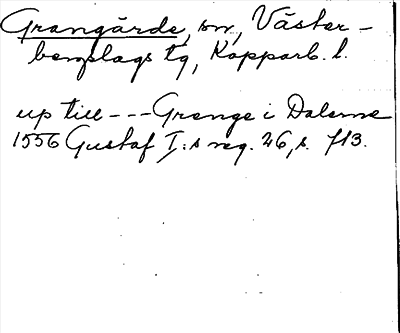 Grangärde, sn, Väster-
bergslags tg, Kopparb. l.
up till --- Grenge i Dalerne
1556 Gustaf I:s reg. 26, s. 713.